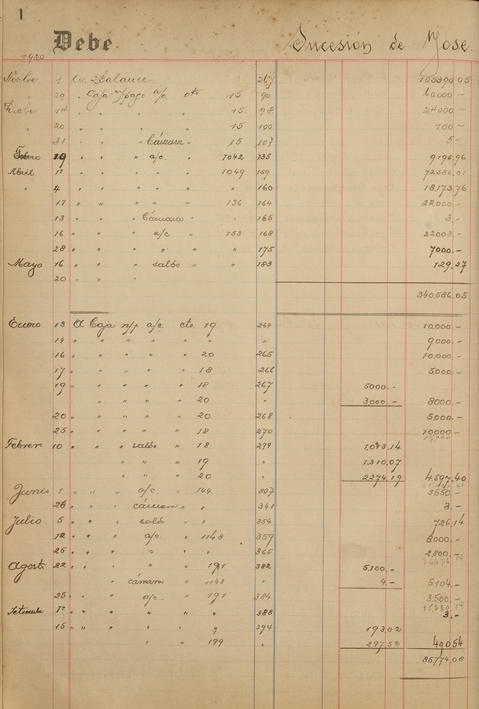 1
Debe Sucesión de José
1920
1 Balance 155399,05
29 " Caja n/pago a/c cte 15 90 10000.-
15 98 24000.-
" 20 " " " 15 100 700.-
" 31 " " " Cámara 15 107 5.-
Febro 19 " " " a/c. " 7042 135 9196,96
Abril 1º " " " " " 1049 159
" 4 " " " " " " 160 18173,76
17 " " " " 136 164 22000.-
13 " " " Cámara " 165 3.-
16 " " " a/c " 153 168 22003.-
28 " " " " " " 175 7000.-
Mayo 16 " " " saldo " " 183 129,27
20 "
340,586,05
Enero 13 A Caja n/p a/c. cte 19 264 10,000.-
14 " " " " " " " 9000.-
16 " " " " " 20 265 10,000.-
17 " " " " " 18 266 5000.-
19 " " " " " 18 267 5000.-
" " " " 20 " 3000.- 8000.-
20 " " " " 20 268 5,000.-
25 " " " " 18 270 10000.-
Febrer 10 " " saldo " 18 279 1,083,14
" " " 19 " 1,310,07
" " " 20 " 2274,19 4,697,40
Junio 1 " " " a/c. " 144 307 3550.-
26 " " cámara " " 341 3.-
Julio 5 " " " saldo " " 354 726,14
12 " " " a/c " 1148 359 8000.-
25 " " " " " " 365 2,800.-
Agost 22 " " " " 191 382 5,100.-
" cámara " 1148 " 4.- 5,104.-
25 " " a/c. " 191 384 3,500.-
Setiembr 1º " " " " " 388 3.-
15 " " " " " 9 394 193,02
" " 199 " 297,52 490,54
85774,08